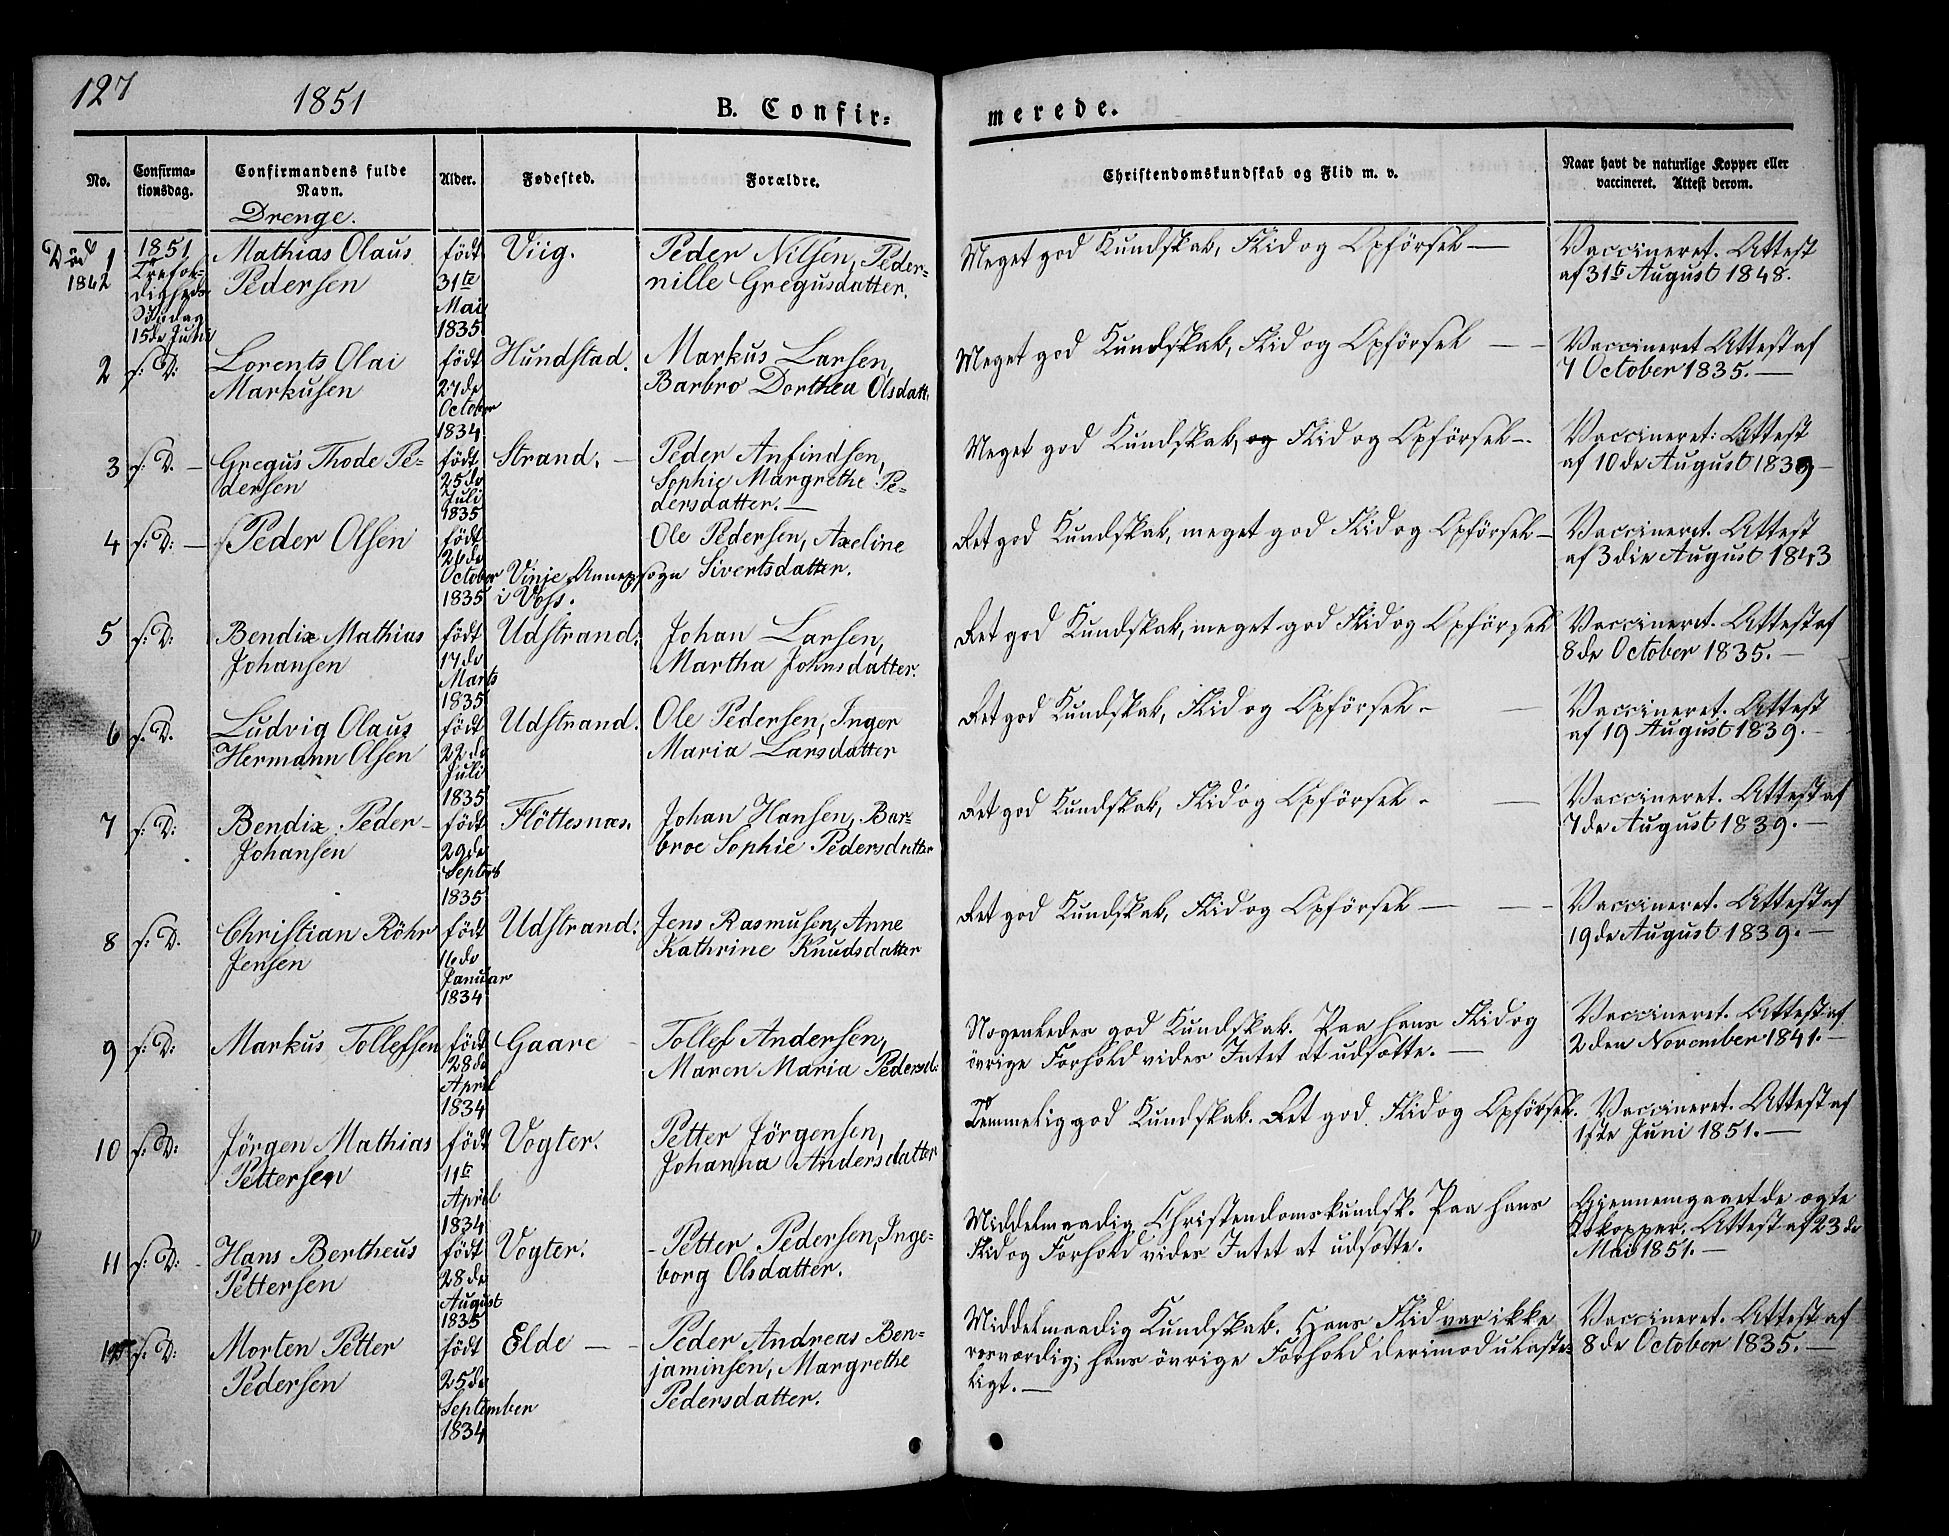 127
1851
B. Confirmerede.
No.
Confirma-
tionsdag.
Confirmandens fulde
Navn.
Alder.
Fødested.
Forældre.
Christendomskundskab og Flid m. v.
Naar havt de naturlige Kopper eller
vaccineret. Attest derom.
Drenge.
Död
1862
1
1851
Trefol-
digheds
Söndag
15de Juni
Mathias Olaus
Pedersen
født
31te
Mai
1835
Viig.
Peder Nilsen, Peder-
nille Gregusdatter.
Meget god Kundskab, Flid og Opførsel —
Vaccineret. Attest
af 31te August 1848.
2
s: D:
Lorents Olai
Markusen
født
27de
October
1834
Hundstad.
Markus Larsen,
Barbro Dorthea Olsdatt.
Meget god Kundskab, Flid og Opførsel — —
Vaccineret Attest af
7 October 1835. —
3
s: D. —
Gregus Thode Pe-
dersen
født
25de
Juli
1835
Strand. —
Peder Anfindsen,
Sophie Margrethe Pe-
dersdatter. —
Meget god Kundskab, og Flid og Opförsel —.
Vaccineret: Attest
af 10de August 1839 —
4
s: D: —
Peder Olsen
født
26de
October
1835
Vinje Annexsogn
i Voss.
Ole Pedersen, Axeline
Sivertsdatter.
Ret god Kundskab, meget god Flid og Opförsel —
Vaccineret. Attest
af 3die August 1843
5
s: D:
Bendix Mathias
Johansen
født
17de
Marts
1835
Udstrand.
Johan Larsen,
Martha Johnsdatter.
Ret god Kundskab, meget god Flid og Opförsel
Vaccineret. Attest af
8de October 1835. —
6
s. D.
Ludvig Olaus
Hermann Olsen
født
22de
Juli
1835
Udstrand.
Ole Pedersen, Inger
Maria Larsdatter
Ret god Kundskab, Flid og Opförsel — —
Vaccineret. Attest
af 19 August 1839. —
7
s: D:
Bendix Peder
Johansen
født
29de
Septem
1835
Flöttesnæs.
Johan Hansen, Bar-
broe Sophie Pedersdatter
Ret god Kundskab, Flid og Opförsel — —
Vaccineret. Attest af
7de August 1839. —
8
s: D.
Christian Röhr
Jensen
født
16de
Januar
1834
Udstrand.
Jens Rasmusen, Anne
Kathrine Knudsdatter
Ret god Kundskab, Flid og Opförsel — — —
Vaccineret. Attest af
19de August 1839. —
9
s: D:
Markus Tollefsen
født
28de
April
1834
Gaare —
Tollef Andersen,
Maren Maria Pedersd:
Nogenledes god Kundskab. Paa hans Flid og
övrige Forhold vides Intet at udsætte. —
Vaccineret. Attest af
2den November 1841. —
10
s: D:
Jörgen Mathias
Pettersen
født
11te
April
1834
Vogter.
Petter Jörgensen,
Johanna Andersdatter
Temmelig god Kundskab. Ret god Flid og Opførsel.
Vaccineret. Attest af
1ste Juni 1851. —
11
s: D: —
Hans Bertheus
Pettersen
født
28de
August
1835
Vogter.
— Petter Pedersen, Inge-
borg Olsdatter.
Middelmaadig Christendomskundsk. Paa hans
Flid og Forhold vides Intet at udsætte.
Gjennemgaaet de ægte
Kokopper. Attest af 23de
Mai 1851. —
12
s: D:
Morten Petter
Pedersen
født
25de
September
1834
Elde — —
Peder Andreas Ben-
jaminsen, Margrethe
Pedersdatter.
Middelmaadig Kundskab. Hans Flid var ikke
rosværdig; hans övrige Forhold derimod ulaste-
ligt. —
Vaccineret. Attest af
8de October 1835. —